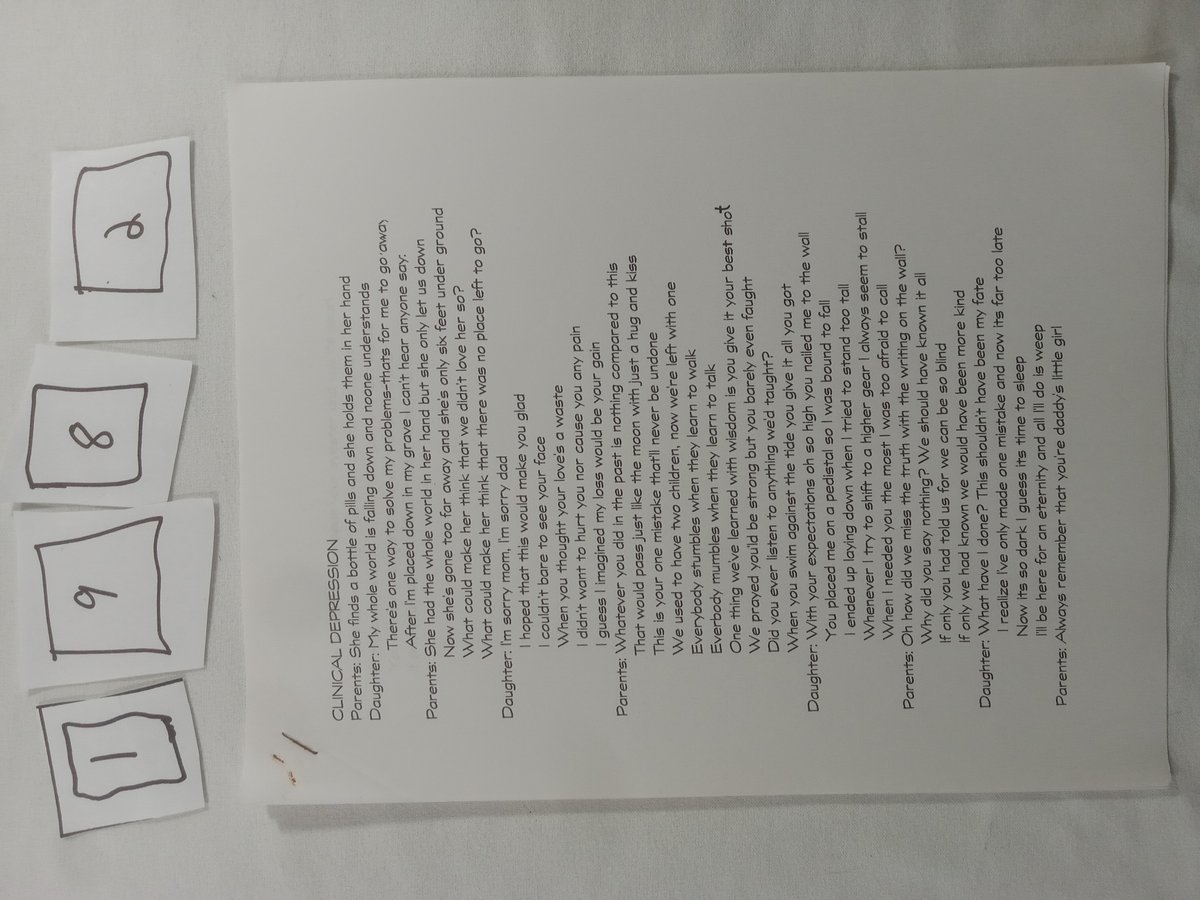 1 9 8 2
CLINICAL DEPRESSION
Parents: She finds a bottle of pills and she holds them in her hand
Daughter: My whole world is falling down and noone understands
There's one way to solve my problems-thats for me to go away
After I'm placed down in my grave I can't hear anyone say:
Parents: She had the whole world in her hand but she only let us down
Now she's gone too far away and she's only six feet under ground
What could make her think that we didn't love her so?
What could make her think that there was no place left to go?
Daughter: I'm sorry mom, I'm sorry dad
I hoped that this would make you glad
I couldn't bare to see your face
When you thought your love's a waste
I didn't want to hurt you nor cause you any pain
I guess I imagined my loss would be your gain
Parents: Whatever you did in the past is nothing compared to this
That would pass just like the moon with just a hug and kiss
This is your one mistake that'll never be undone
We used to have two children, now we're left with one
Everybody stumbles when they learn to walk
Everbody mumbles when they learn to talk
One thing we've learned with wisdom is you give it your best shot
We prayed you'd be strong but you barely even faught
Did you ever listen to anything we'd taught?
When you swim against the tide you give it all you got
Daughter: With your expectations oh so high you nailed me to the wall
You placed me on a pedistal so I was bound to fall
I ended up laying down when I tried to stand too tall
Whenever I try to shift to a higher gear I always seem to stall
When I needed you the most I was too afraid to call
Parents: Oh how did we miss the truth with the writing on the wall?
Why did you say nothing? We should have known it all
If only you had told us for we can be so blind
If only we had known we would have been more kind
Daughter: What have I done? This shouldn't have been my fate
I realize I've only made one mistake and now its far too late
Now its so dark I guess its time to sleep
I'll be here for an eternity and all I'll do is weep
Parents: Always remember that you're daddy's little girl